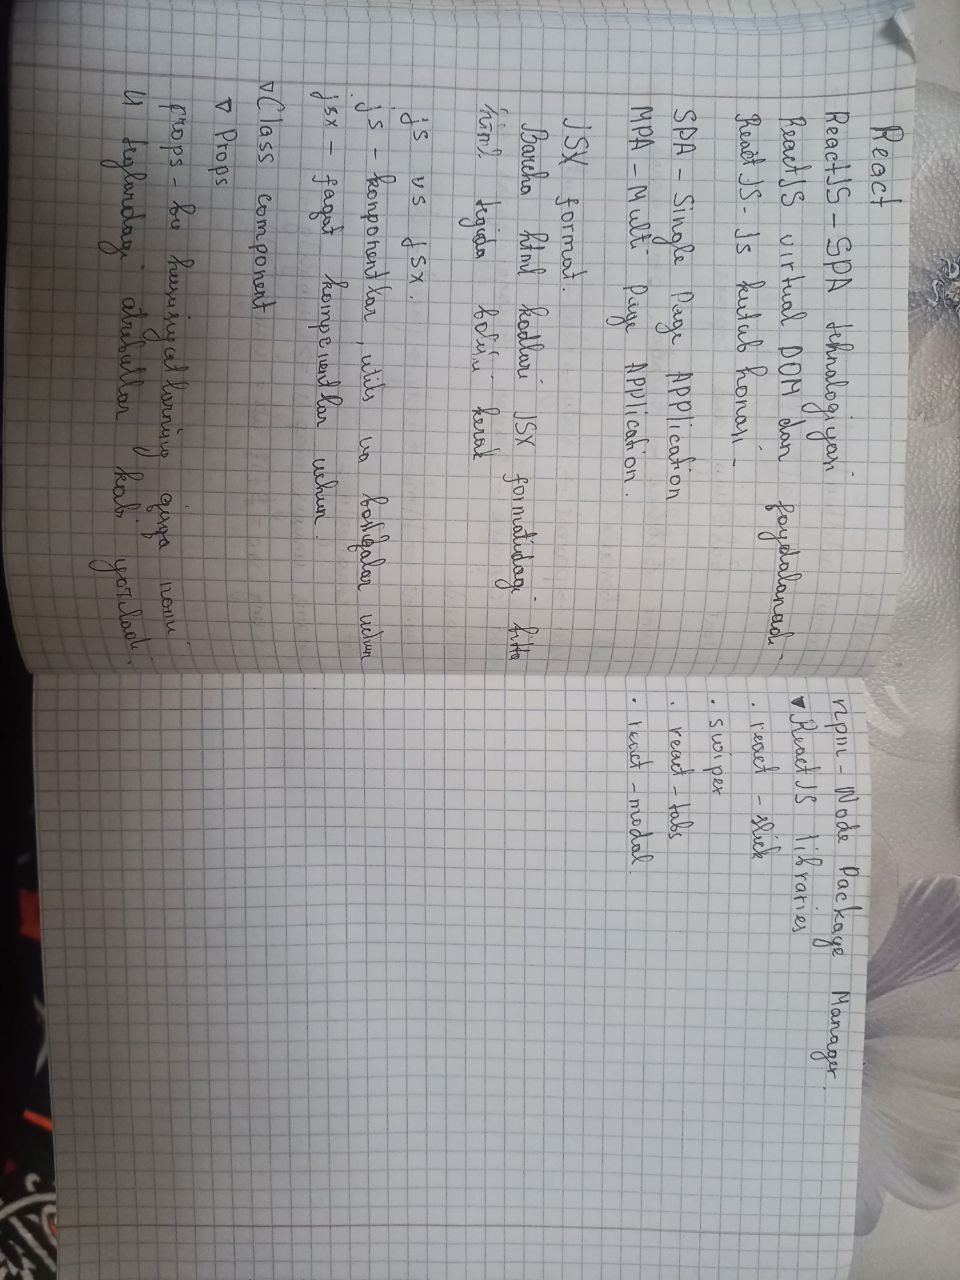 React
ReactJS - SPA tehnalogiyasi
ReactJS virtual DOM dan foydalanadi -
ReactJS - Js kutubhonasi -
SPA - Single Page APPlication
MPA - Multi Page APPlication.
JSX format.
Barcha html kodlari JSX formatidagi bitta
html tegida bo'lishi kerak
js vs JSX.
js - konponentlar, utils va boshqalar uchun
jsx - faqat komponentlar uchun.
▽ Class component
▽ Props
props - bu hususiyatlarning qisqa nomi
U teglardagi atributlar kabi yoziladi.
npm - Node Package Manager.
▼ ReactJS libraries
. react - slick
. swiper
. react - tabs
. react - modal.